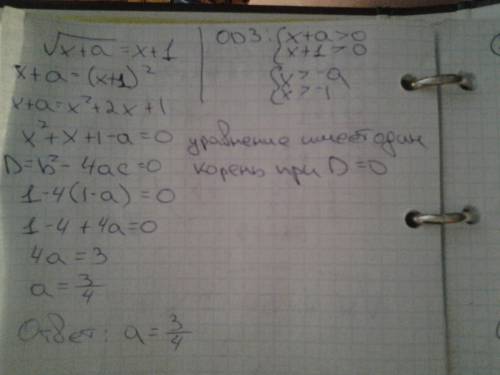 √x+a = x+1
x+a = (x+1)²
x+a = x²+2x+1
x²+x+1-a=0
D=b²-4ac=0
1-4(1-a)=0
1-4+4a=0
4a=3
a=3/4
Ответ: a=3/4
ОДЗ: {x+a>0
x+1>0
{x>-a
x>-1
уравнение имеет один
корень при D=0